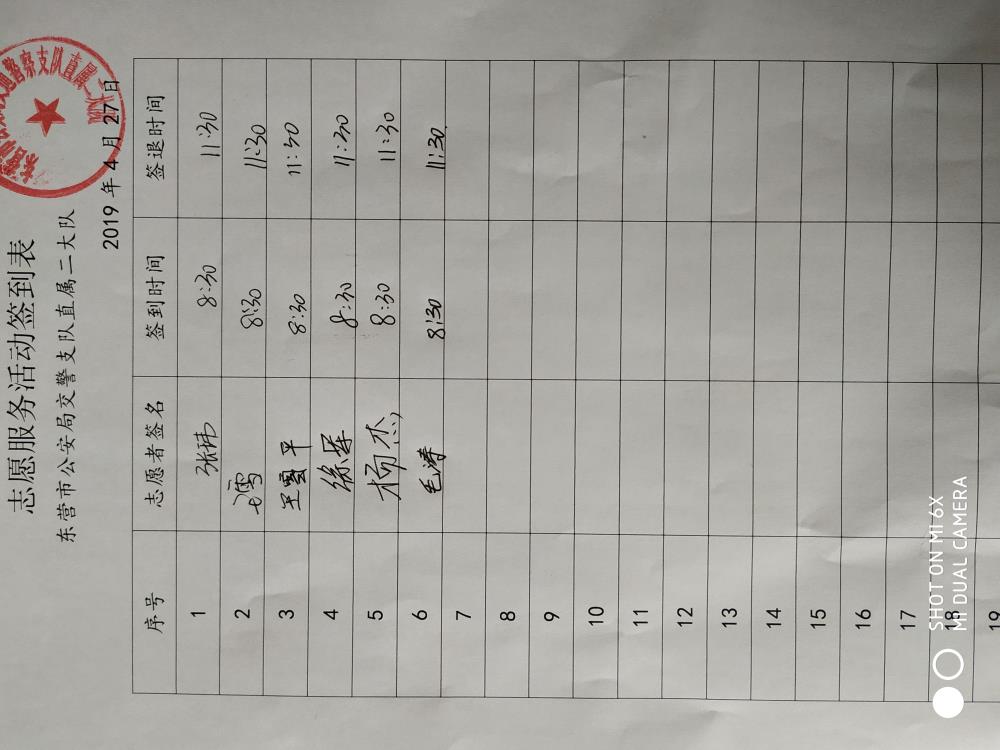 志愿服务活动签到表
东营市公安局交警支队直属二大队
2019 年 4 月 27 日
序号 志愿者签名 签到时间 签退时间
1 张玮 8:30 11:30
2 8:30 11:30
3 王云平 8:30 11:30
4 徐军 8:30 11:30
5 杨杰 8:30 11:30
6 毛涛 8:30 11:30
7
8
9
10
11
12
13
14
15
16
17
18
19
SHOT ON MI 6X
MI DUAL CAMERA